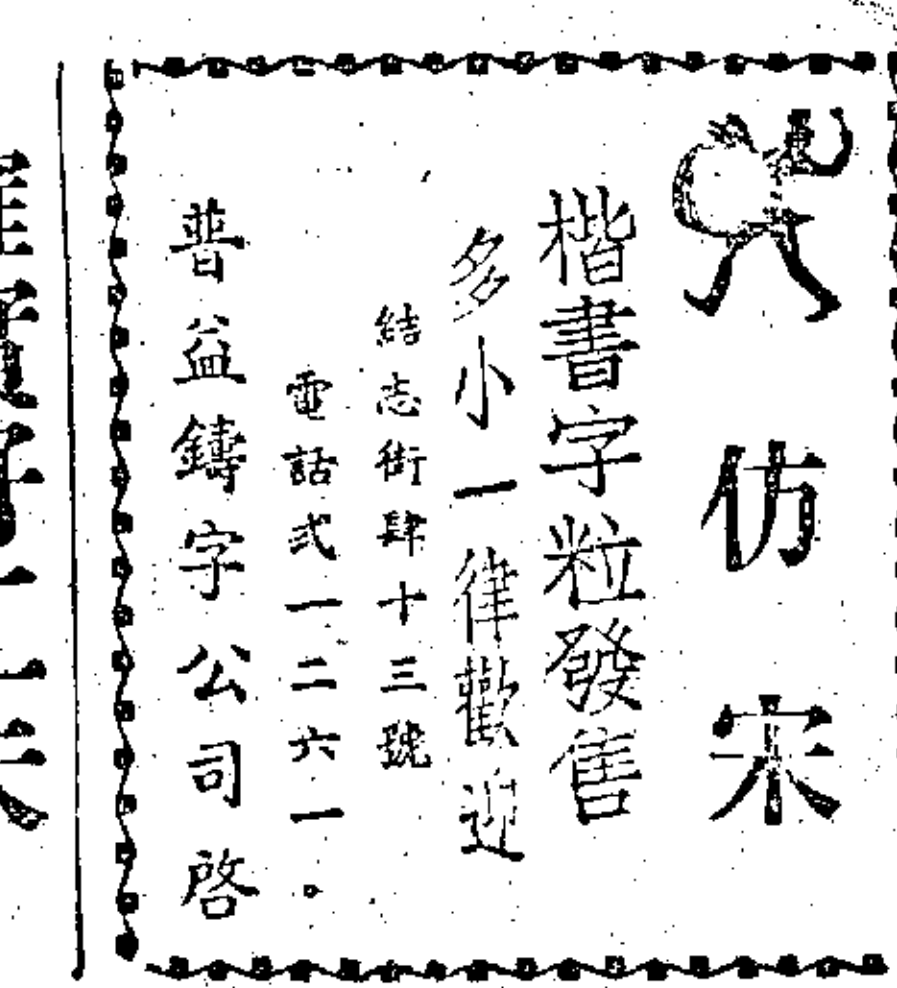 仿宋
楷書字粒發售
多小一律歡迎
結志街肆十三號
電話弍一二六一。
普益鑄字公司啓